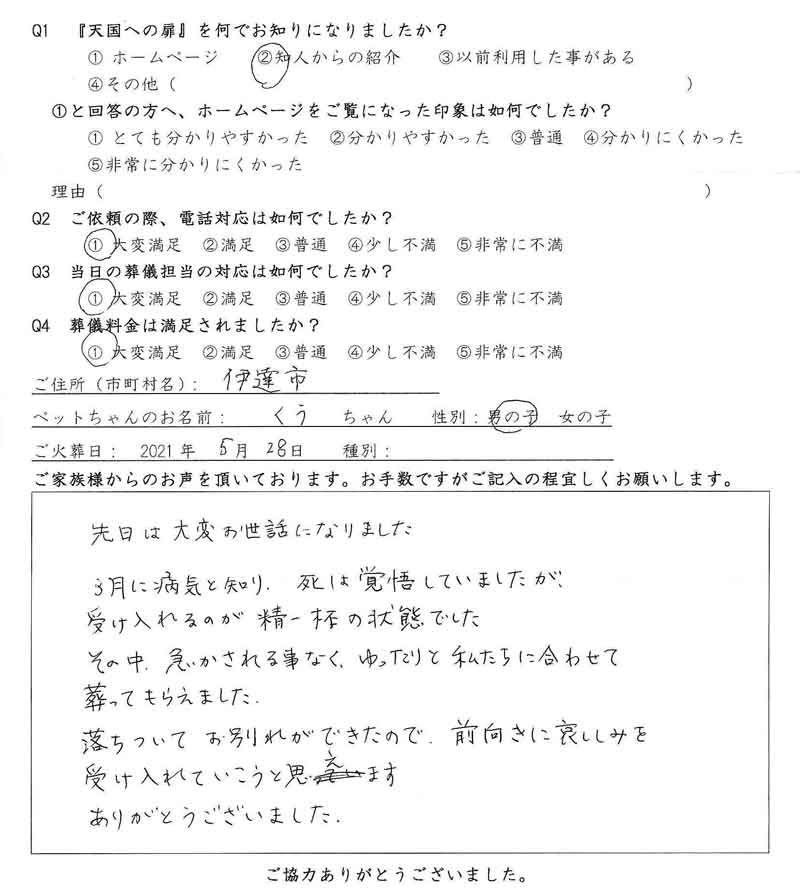 Q1 『天国への扉』を何でお知りになりましたか？
① ホームページ ②知人からの紹介 ③以前利用した事がある
④その他（ ）
①と回答の方へ、ホームページをご覧になった印象は如何でしたか？
① とても分かりやすかった ②分かりやすかった ③普通 ④分かりにくかった
⑤非常に分かりにくかった
理由（ ）
Q2 ご依頼の際、電話対応は如何でしたか？
① 大変満足 ②満足 ③普通 ④少し不満 ⑤非常に不満
Q3 当日の葬儀担当の対応は如何でしたか？
① 大変満足 ②満足 ③普通 ④少し不満 ⑤非常に不満
Q4 葬儀料金は満足されましたか？
① 大変満足 ②満足 ③普通 ④少し不満 ⑤非常に不満
ご住所（市町村名）： 伊達市
ペットちゃんのお名前： くう ちゃん 性別：男の子 女の子
ご火葬日： 2021年 5月 28日 種別：
ご家族様からのお声を頂いております。お手数ですがご記入の程宜しくお願いします。
先日は大変お世話になりました
3月に病気と知り、死は覚悟していましたが、
受け入れるのが精一杯の状態でした
その中、急かされる事なく、ゆったりと私たちに合わせて
葬ってもらえました.
落ちついてお別れができたので、前向きに哀ししみを
受け入れていこうと思えます
ありがとうございました.
ご協力ありがとうございました。